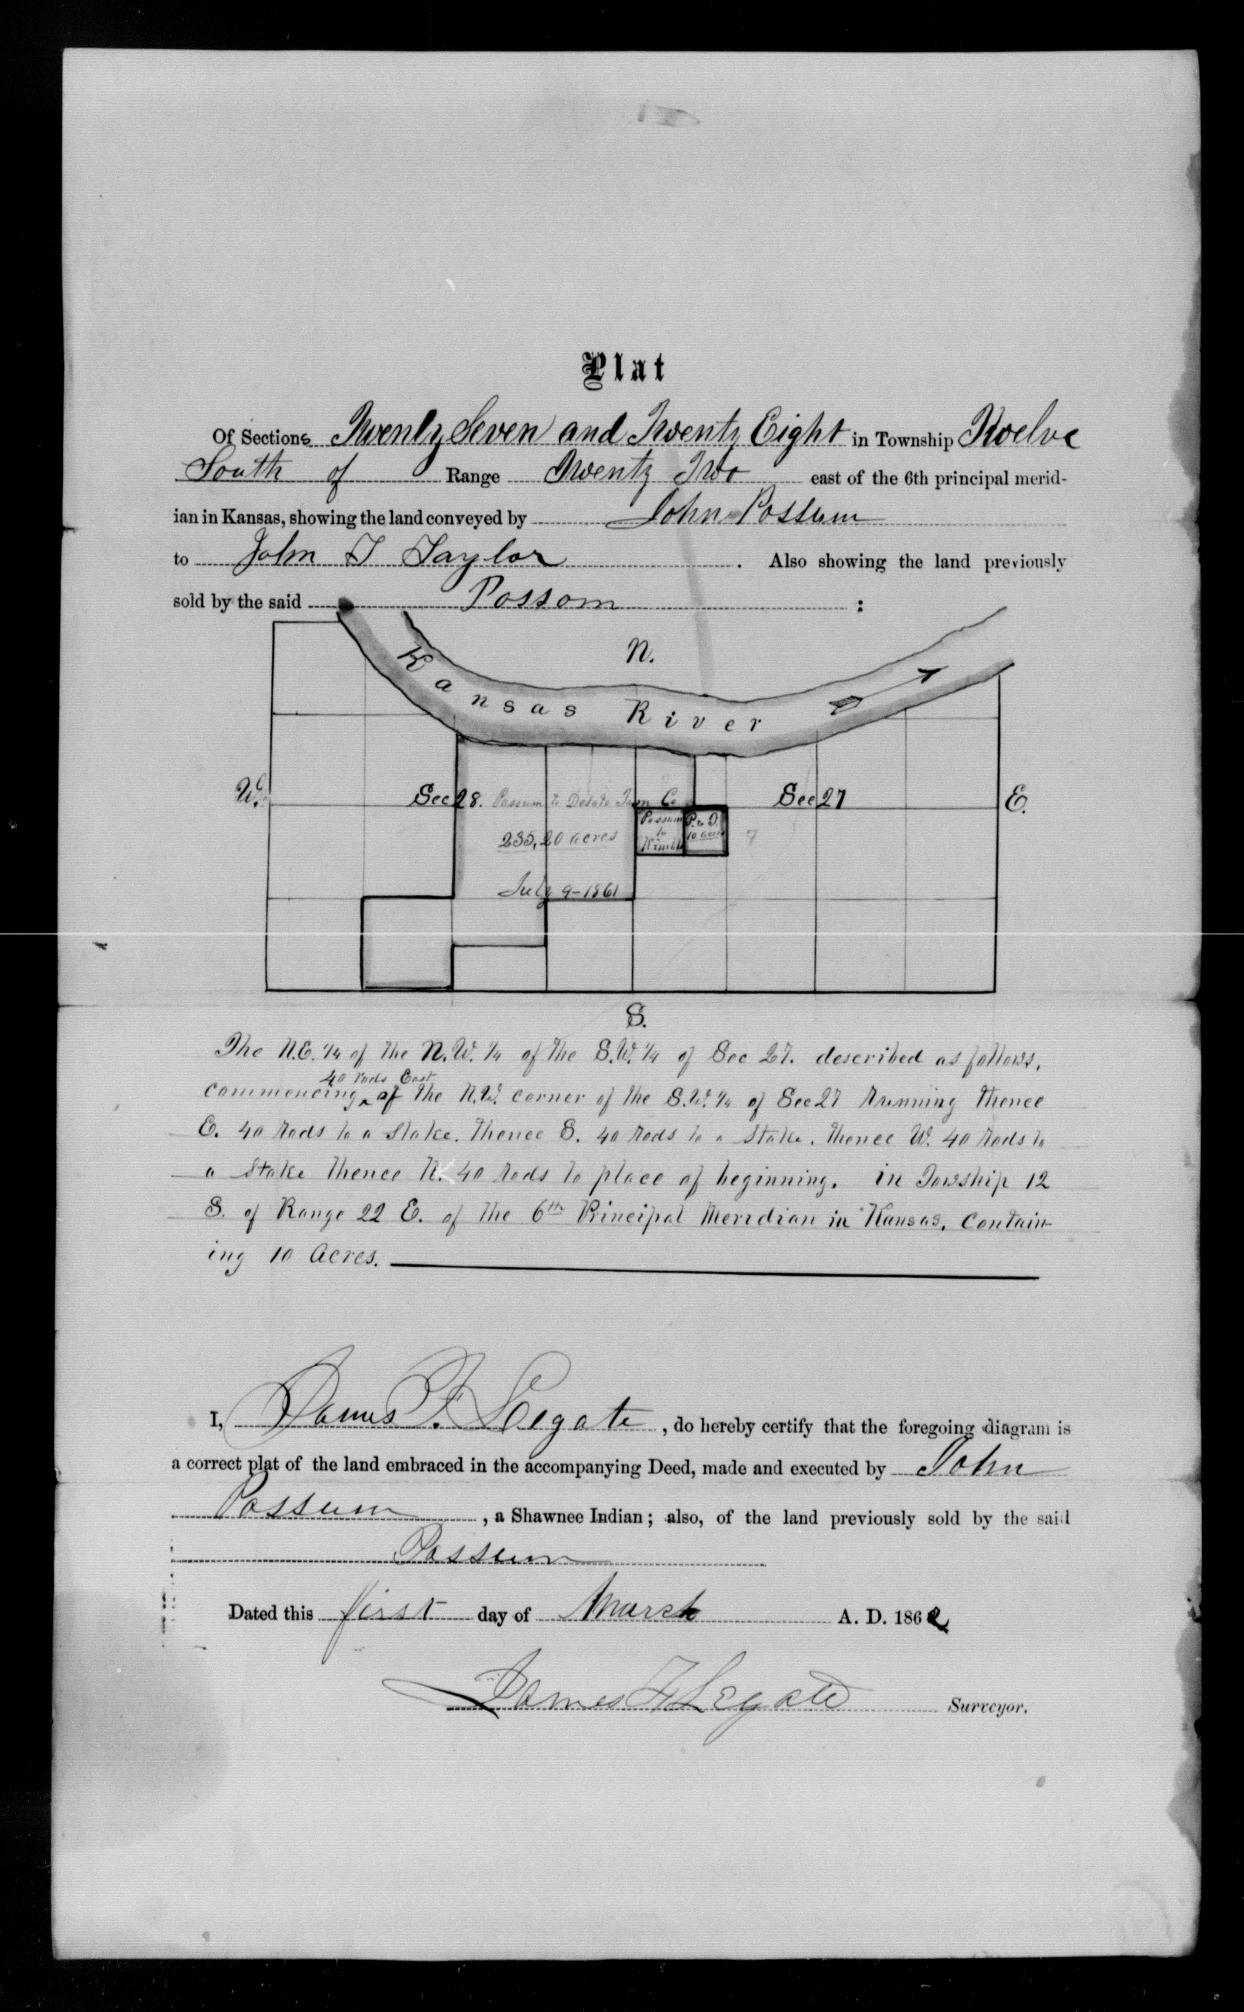 Plat
Of Sections Twenty Seven and Twenty Eight in Township Twelve
South of Range Twenty Two east of the 6th principal merid-
ian in Kansas, showing the land conveyed by John Possum
to John T Taylor. Also showing the land previously
sold by the said Possom :
N.
Kansas River
W.
Sec 28. Possum to Desoto Town Co
Sec 27
E.
Possum to Kimble
P. to T 10 acres
235,20 acres
July 9-1861
S.
The N.E. 1/4 of the N.W. 1/4 of the S.W. 1/4 of Sec 27. described as follows,
40 rods East
commencing ^ of the N.W. corner of the S.W. 1/4 of Sec 27 running thence
E. 40 rods to a Stake. thence S. 40 rods to a Stake, thence W. 40 rods to
a Stake thence N. 40 rods to place of beginning. in Towship 12
S. of Range 22 E. of the 6th Principal Meridian in Kansas. Contain-
ing 10 Acres.
I, James F. Legate, do hereby certify that the foregoing diagram is
a correct plat of the land embraced in the accompanying Deed, made and executed by John
Possum, a Shawnee Indian; also, of the land previously sold by the said
Possum
Dated this first day of March A. D. 1862
James F Legate Surveyor.